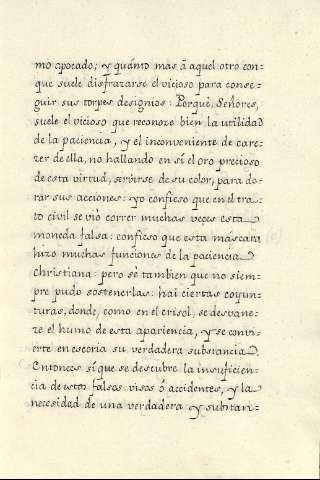 mo apocado; y quánto mas à aquel otro con=
que suele disfrazarse el vicioso para conse=
guir sus torpes designios: Porque, Señores,
suele el vicioso que reconoze bien la utilidad
de la paciencia, y el inconveniente de care=
zer de ella, no hallando en sí el oro precioso
de esta virtud, servirse de su color, para do=
rar sus acciones: yo confieso que en el tra=
to civil se viò correr muchas veces esta
moneda falsa: confieso que esta máscara
hizo muchas funciones de la paciencia
Christiana: pero sè tambien que no siem=
pre pudo sostenerlas: hai ciertas coyun=
turas, donde, como en el crisol, se desvane=
ze el humo de esta apariencia, y se convi=
erte en escoria su verdadera substancia.
Entonces sí que se descubre la insuficien=
cia de estos falsos visos ó accidentes, y la
necesidad de una verdadera y substan=